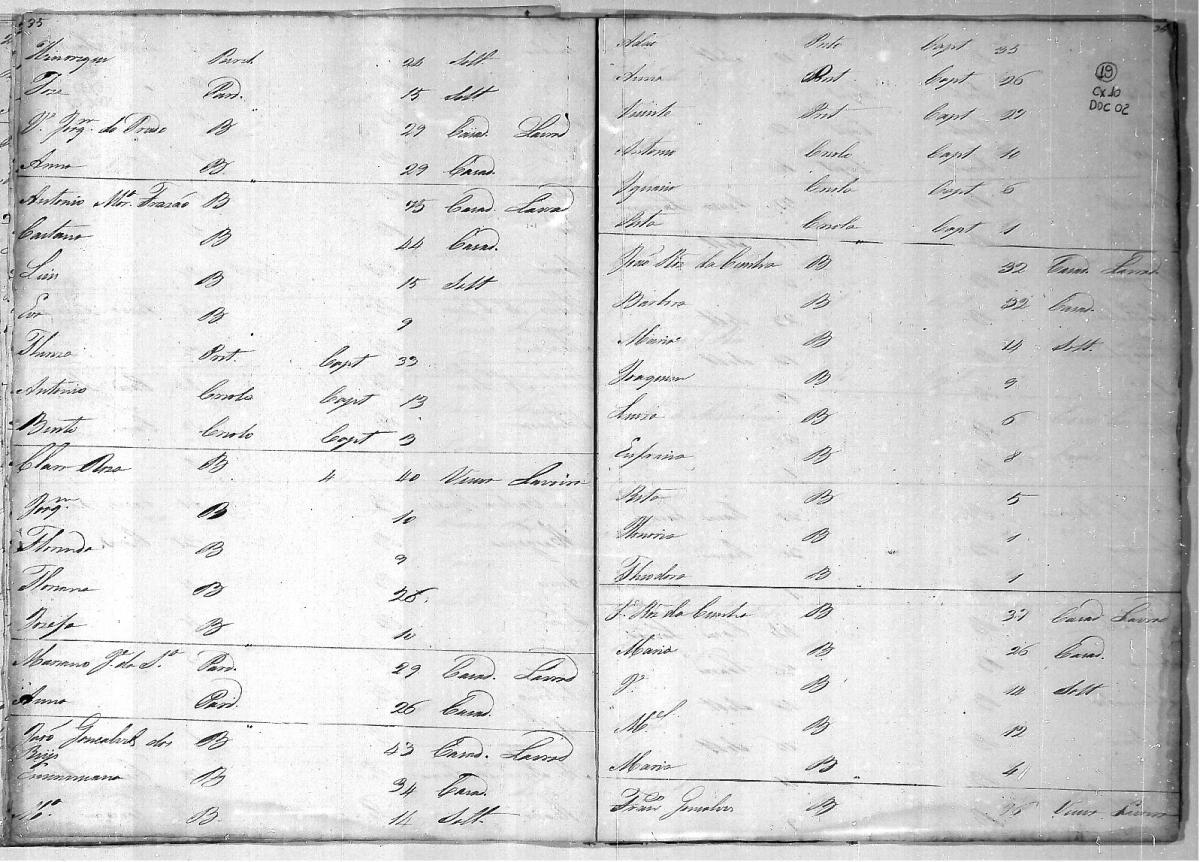 35
Pard. 24 Solt
Jose Pard. 15 Solt
Je. Jorg. do Prado B 29 Casad. Lavrad
Anna B 29 Casad.
Antonio Frazão B 75 Casad. Lavrad
Caetana B 44 Casad.
Luis B 15 Solt
Eva B 9
Pret. Capt 33
Antonio Criolo Capt 13
Bento Criolo Capt 3
Clara Roza B 4 40 Viuva Lavoira
Jorg.m B 10
B 9
Floriana B 26.
Josefa B 10
Mariano Je. da Sa. Pard. 29 Casad. Lavrad
Anna Pard. 26 Casad.
João Gonsalves dos B 43 Casad. Lavrad
Reijs
B 34 Casad.
Ma. B 14 Solt.
36
19
CX 10
DOC 02
Adão Preto Capt 35
Anna Pret Capt 26
Vicente Pret Capt
Antonio Criolo Capt 10
Ignacio Criolo Capt 6
Rita Criola Capt 1
José Roz da Cunha B 32 Casad. Lavrad
Barbara B 32 Casad.
Maria B 14 Solt.
Joaquim B 9
B 6
B 8
Rita B 5
B 1
Theodora B 1
Je. Roz da Cunha B 37 Casad Lavrad
Maria B 26 Casad.
Je. B 14 Solt
Mel. B 12
Maria B 4
Franco. Gonsalves B Viuvo Lavrad